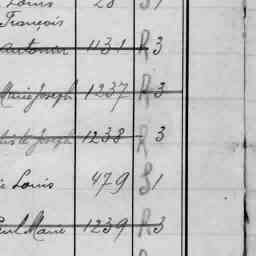 Louis 28 S1
François
Antonin 1131 R3
Marie Joseph 1237 R3
de Joseph 1238 R3
Louis 479 S1
Paul Marie 1239 R3